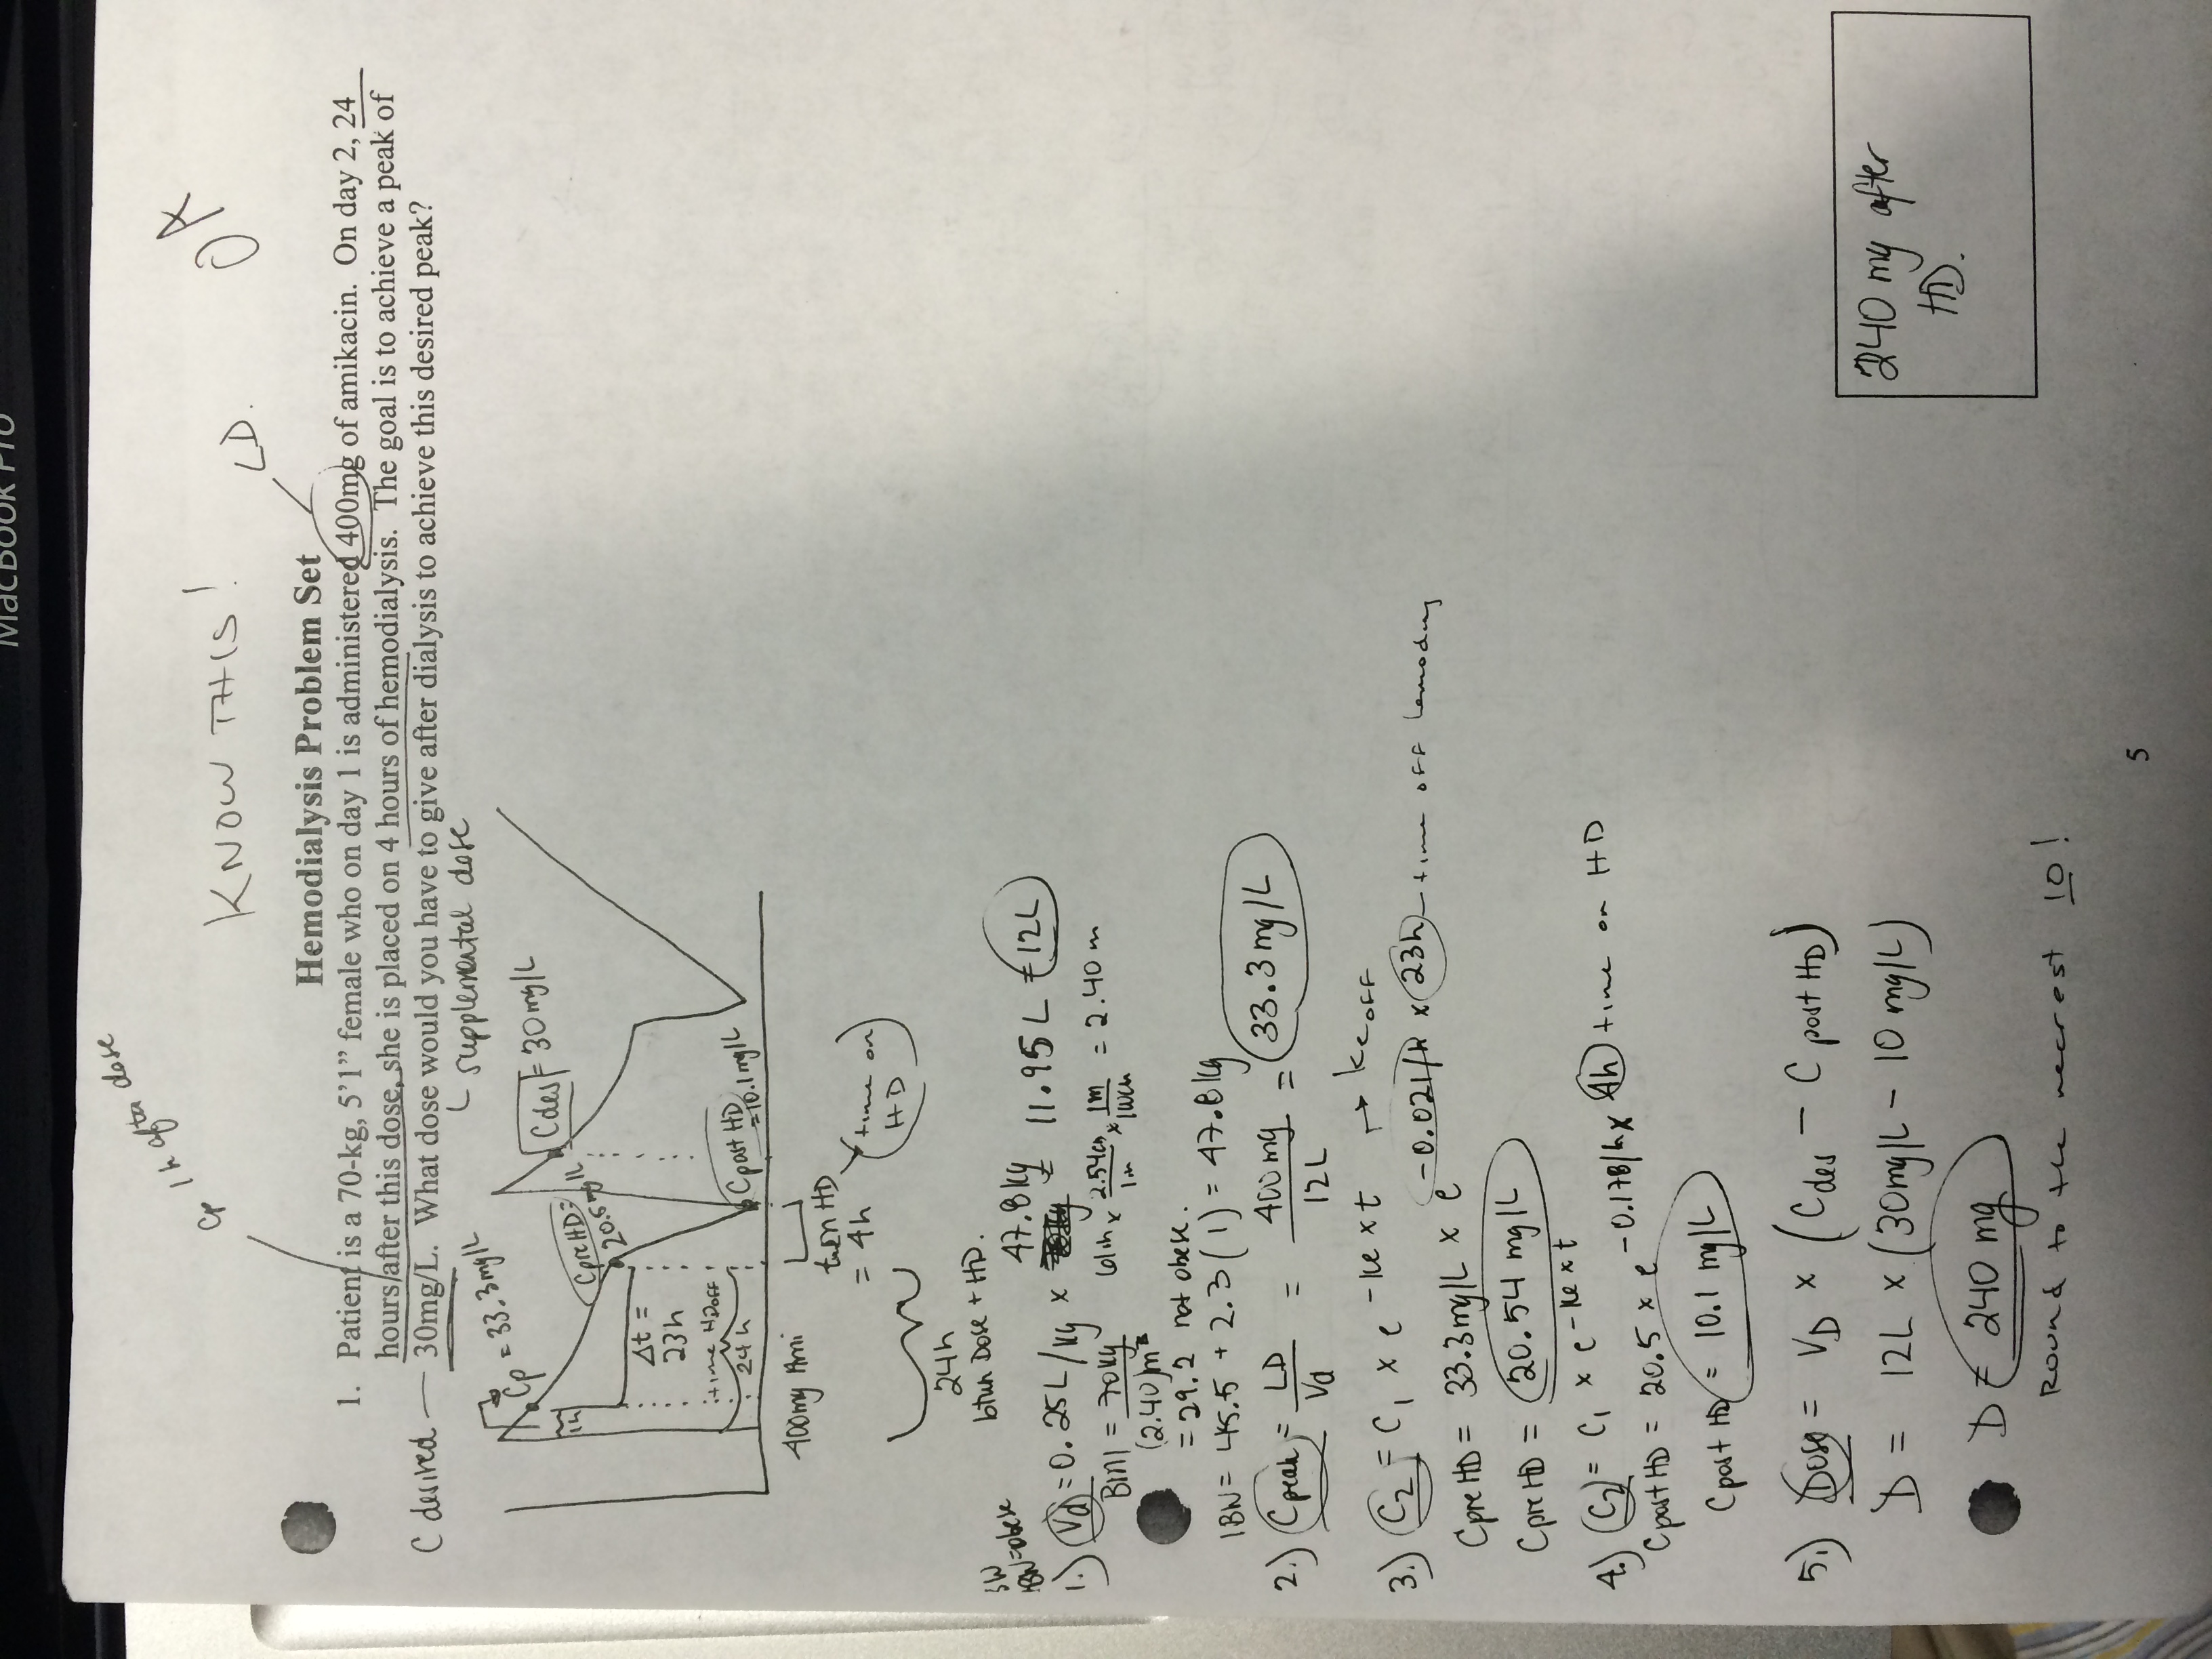 MacBook Pro
Cp 1h after dose
KNOW THIS!
OA
LD.
Hemodialysis Problem Set
1. Patient is a 70-kg, 5'1" female who on day 1 is administered 400mg of amikacin. On day 2, 24
hours after this dose, she is placed on 4 hours of hemodialysis. The goal is to achieve a peak of
C desired — 30mg/L. What dose would you have to give after dialysis to achieve this desired peak?
supplemental dose
Cp = 33.3mg/L
Cdes = 30mg/L
1h
Cpre HD =
20.5mg/L
Δt =
23h
time HDoff
24h
Cpost HD
=10.1mg/L
400mg Ami
t on HD
= 4h
time on
HD
24h
btwn Dose + HD.
=obese
47.8kg
1.) Vd = 0.25L/kg x = 11.95L = 12L
BMI = 70kg
(2.40)m²
61in x 2.54cm/1in x 1m/100cm = 2.40m
= 29.2 not obese.
IBW = 45.5 + 2.3(1) = 47.8kg
2.) Cpeak = LD/Vd = 400mg/12L = 33.3mg/L
3.) C2 = C1 x e -ke x t → ke OFF
Cpre HD = 33.3mg/L x e -0.021/h x 23h — time off
Cpre HD = 20.54 mg/L
4.) C2 = C1 x e -ke x t
Cpost HD = 20.5 x e -0.178/h x 4h time on HD
Cpost HD = 10.1 mg/L
5.) Dose = VD x (Cdes - C post HD)
D = 12L x (30mg/L - 10mg/L)
D = 240 mg
Round to the nearest 10!
240 mg after
HD.
5